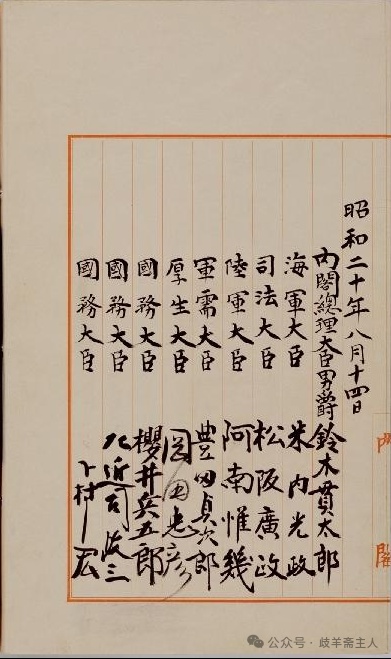 昭和二十年八月十四日
内閣總理大臣男爵鈴木貫太郎
海軍大臣 米内光政
司法大臣 松阪廣政
陸軍大臣 阿南惟幾
軍需大臣 豊田貞次郎
厚生大臣 岡田忠彦
國務大臣 櫻井兵五郎
國務大臣 左近司政三
國務大臣 下村宏
公众号 · 歧羊斋主人